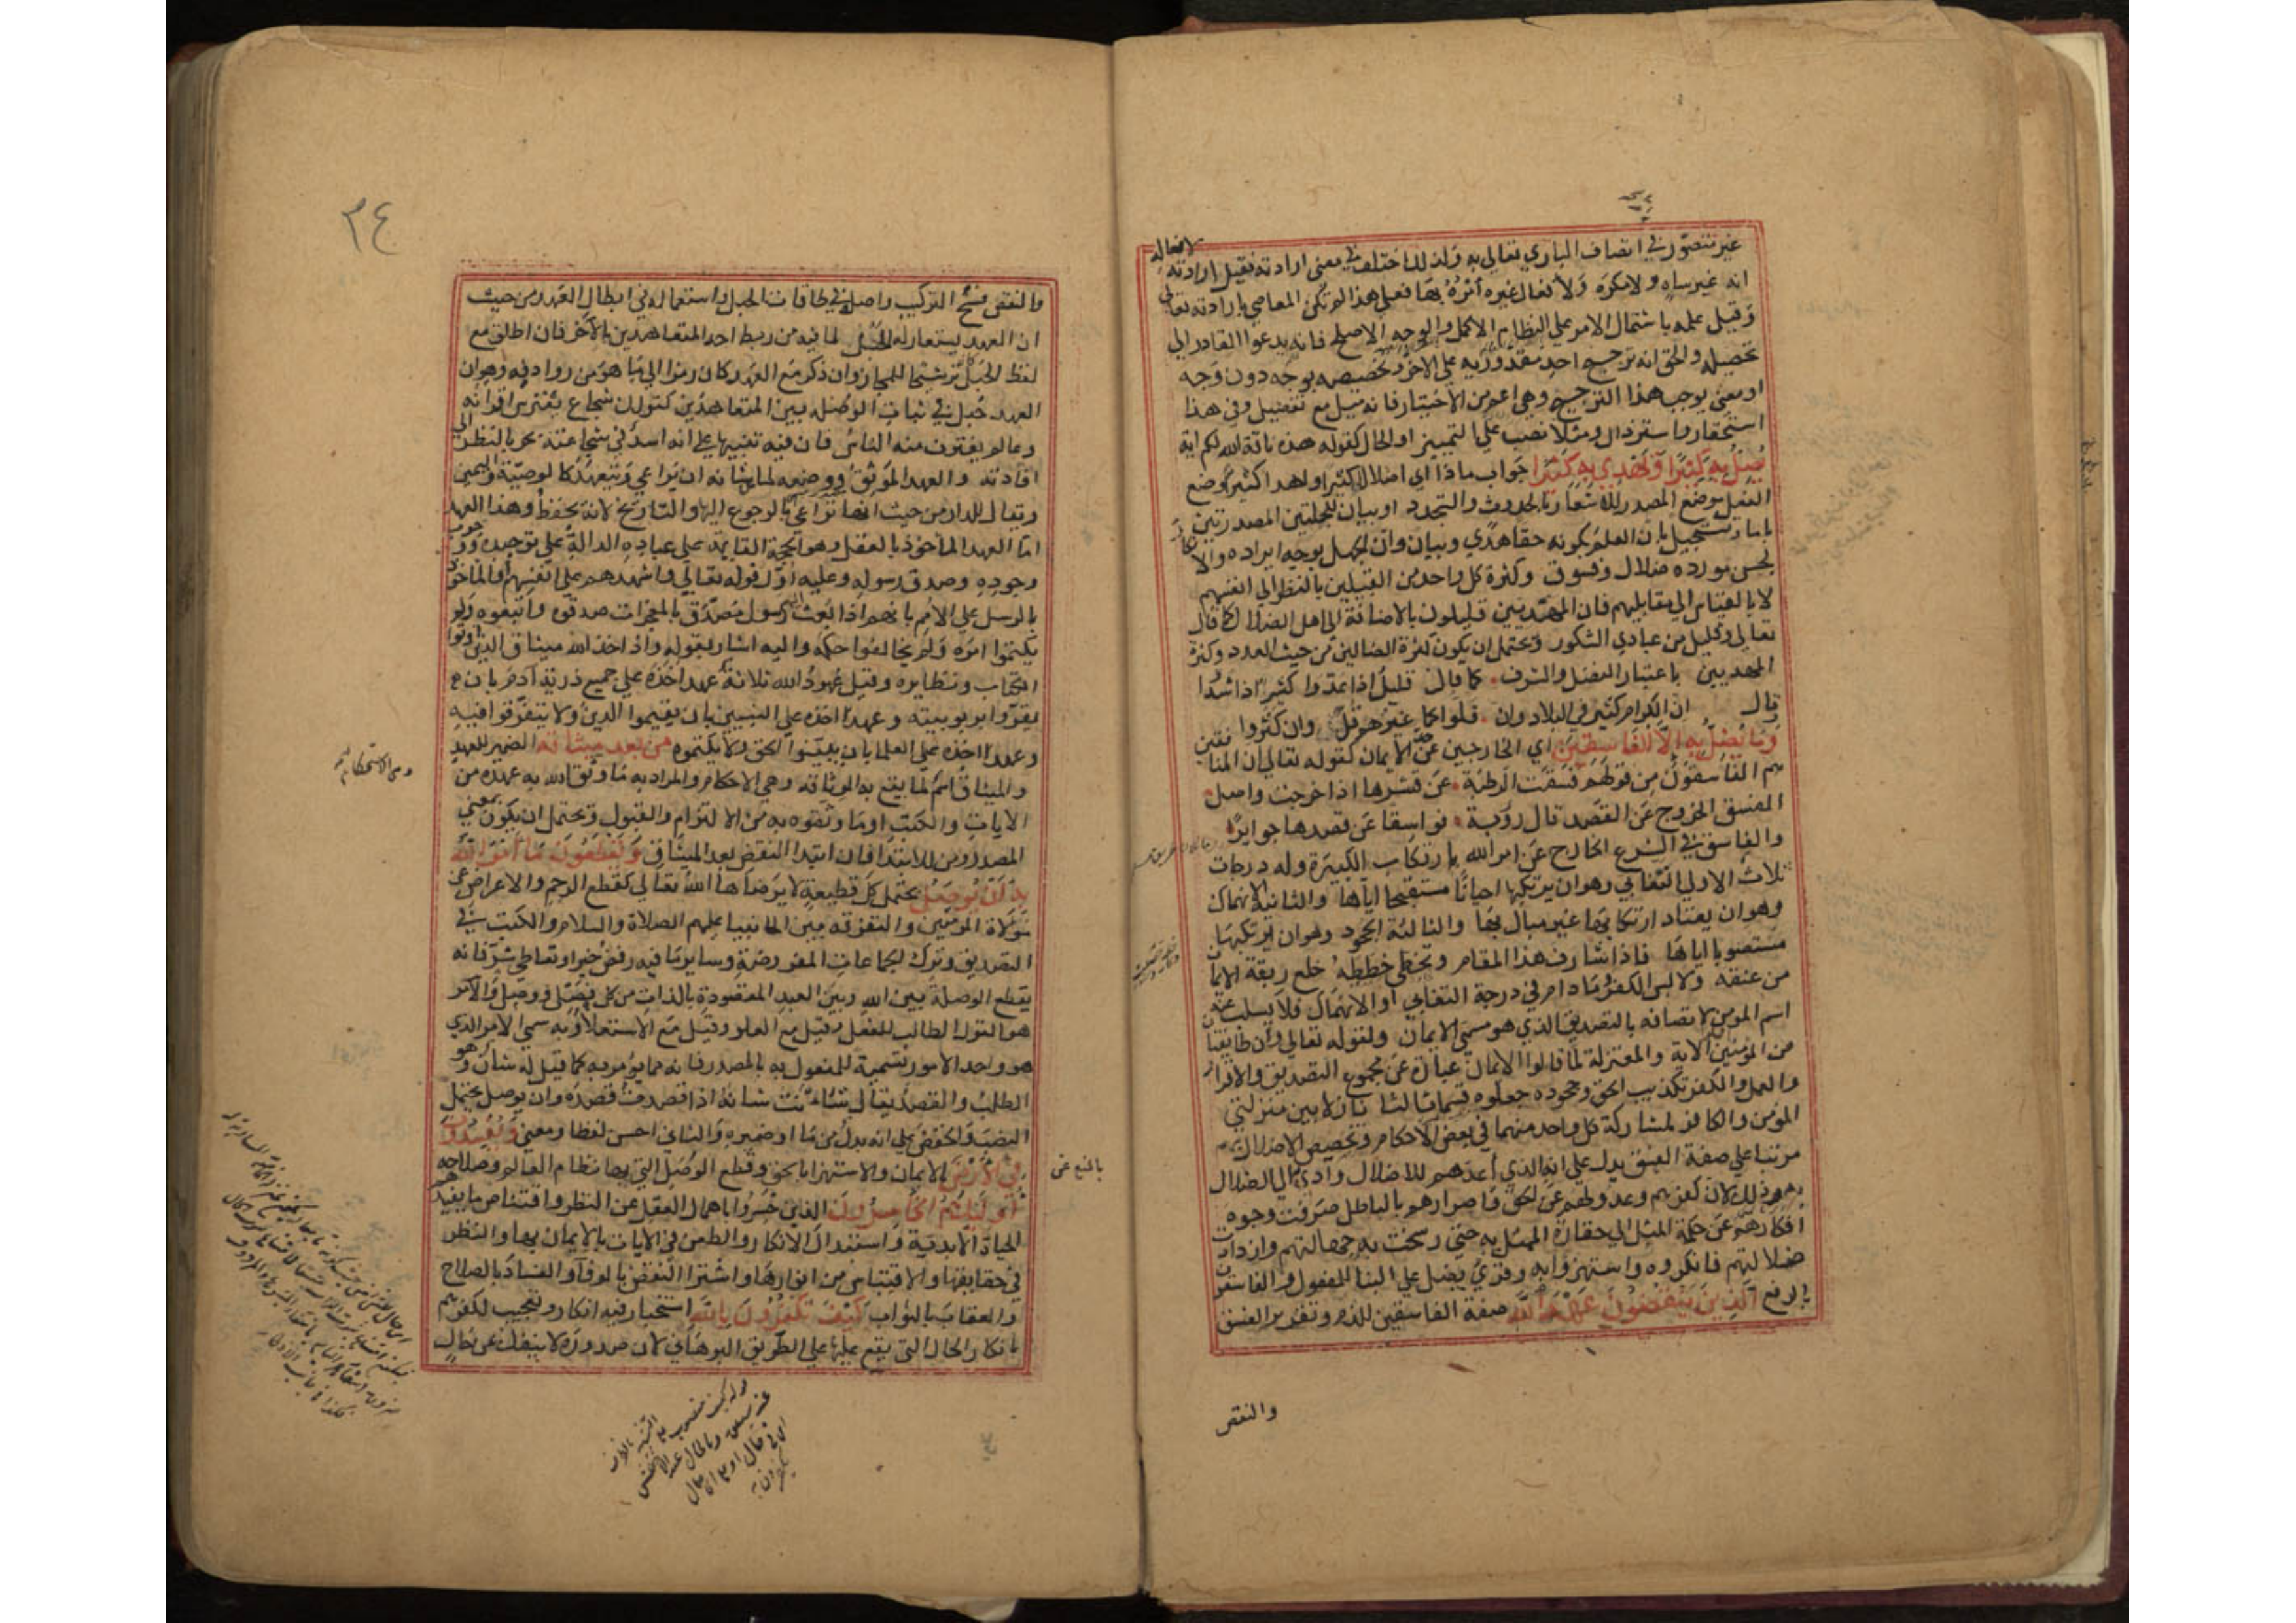 غير متصور في اتصاف الباري تعالى به ولذلك اختلف في معنى ارادته فقيل ارادته لافعاله
انه غير ساه ولا مكره ولافعال غيره امره بها فعلى هذا لم تكن المعاصي بارادته تعالى
وقيل علمه باشتمال الامر على النظام الاكمل والوجه الاصلح فانه يدعوا القادر الى
تحصيله والحق انه ترجيح احد مقدوريه على الاخر وتخصيصه بوجه دون وجه
او معنى يوجب هذا الترجيح وهي اعم من الاختيار فانه ميل مع تفضيل وفي هذا
استحقار واسترذال ومثلا نصب على التمييز او الحال كقوله هذه ناقة الله لكم اية
يضل به كثيرا ويهدي به كثيرا جواب ماذا اي اضلال كثير او اهدا كثير وضع
الفعل موضع المصدر للاشعار بالحدوث والتجدد او بيان للجملتين المصدرتين
باما وتسجيل بان العلم بكونه حقا هدي وبيان وان الجهل بوجه ايراده والانكار
لحسن مورده ضلال وفسوق وكثرة كل واحد من القبيلين بالنظر الى انفسهم
لا بالقياس الى مقابليهم فان المهديين قليلون بالاضافة الى اهل الضلال كما قال
تعالى وقليل من عبادي الشكور ويحتمل ان يكون كثرة الضالين من حيث العدد وكثرة
المهديين باعتبار الفضل والشرف كما قال قليل اذا عدوا كثير اذا شدوا
وقال ان الكرام كثير في البلاد وان قلوا كما غيرهم قل وان كثروا
وما يضل به الا الفاسقين اي الخارجين عن حد الايمان كقوله تعالى ان المنافقين
هم الفاسقون من قولهم فسقت الرطبة عن قشرها اذا خرجت واصل
الفسق الخروج عن القصد قال روبة فواسقا عن قصدها جوايرا
والفاسق في الشرع الخارج عن امر الله بارتكاب الكبيرة وله درجات
ثلاث الاولى التغابي وهو ان يرتكبها احيانا مستقبحا اياها والثانية الانهماك
وهو ان يعتاد ارتكابها غير مبال بها والثالثة الجحود وهو ان يرتكبها
مستصوبا اياها فاذا شارف هذا المقام وتخطى خططه خلع ربقة الايمان
من عنقه ولابس الكفر وما دام في درجة التغابي او الانهماك فلا يسلب عنه
اسم المومن لاتصافه بالتصديق الذي هو مسمى الايمان ولقوله تعالى وان طايفتان
من المؤمنين الاية والمعتزلة لما قالوا الايمان عبارة عن مجموع التصديق والاقرار
والعمل والكفر تكذيب الحق وجحوده جعلوه قسما ثالثا نازلا بين منزلتي
المؤمن والكافر لمشاركة كل واحد منهما في بعض الاحكام وتخصيص الاضلال بهم
مرتبا على صفة الفسق يدل على انه الذي اعدهم للاضلال وادى بهم الى الضلال
وذلك لان كفرهم وعدولهم عن الحق واصرارهم بالباطل صرفت وجوه
افكارهم عن حكمة المثل الى حقارة الممثل به حتى رسخت به جهالتهم وازدادت
ضلالتهم فانكروه واستهزؤا به وقري يضل على البنا للمفعول والفاسقون
بالرفع الذين ينقضون عهد الله صفة الفاسقين للذم وتقرير الفسق
والنقض
٣٤
والنقض فسخ التركيب واصله في طاقات الحبل واستعماله في ابطال العهد من حيث
ان العهد يستعار له الحبل لما فيه من ربط احد المتعاهدين بالآخر فان اطلق مع
لفظ الحبل كان ترشيحا للمجاز وان ذكر مع العهد كان رمزا الى ما هو من روادفه وهو ان
العهد حبل في ثبات الوصلة بين المتعاهدين كقولك شجاع يفترس اقرانه
وعالم يغترف منه الناس فان فيه تنبيها على انه اسد في شجاعته بحر بالنظر الى
افادته والعهد الموثق ووضعه لما من شانه ان يراعى ويتعهد كالوصية واليمين
ويقال للدار من حيث انها تراعى بالرجوع اليها والتاريخ لانه يحفظ وهذا العهد
اما العهد الماخوذ بالعقل وهو الحجة القايمة على عباده الدالة على توحيده ووجوب
وجوده وصدق رسوله وعليه اول قوله تعالى واشهدهم على انفسهم والماخوذ
بالرسل على الامم بانهم اذا بعث اليهم رسول مصدق بالمعجزات صدقوه واتبعوه ولم
يكتموا امره ولم يخالفوا حكمه واليه اشار بقوله واذ اخذ الله ميثاق الذين اوتوا
الكتاب ونظايره وقيل عهود الله ثلاثة عهد اخذه على جميع ذرية آدم بان
يقروا بربوبيته وعهد اخذه على النبيين بان يقيموا الدين ولا يتفرقوا فيه
وعهد اخذه على العلما بان يبينوا الحق ولا يكتموه من بعد ميثاقه الضمير للعهد
والميثاق اسم لما يقع به الوثاقة وهي الاحكام والمراد به ما وثق الله به عهده من
الايات والكتب او ما وثقوه به من الالتزام والقبول ويحتمل ان يكون بمعنى
المصدر ومن للابتدا فان ابتدا النقض بعد الميثاق ويقطعون ما امر الله
به ان يوصل يحتمل كل قطيعة لا يرضاها الله تعالى كقطع الرحم والاعراض عن
موالاة المؤمنين والتفرقة بين الانبيا عليهم الصلاة والسلام والكتب في
التصديق وترك الجماعات المفروضة وساير ما فيه رفض خير او تعاطي شر فانه
يقطع الوصلة بين الله وبين العبد المقصودة بالذات من كل وصل وفصل والامر
هو القول الطالب للفعل وقيل مع العلو وقيل مع الاستعلاء وبه سمي الامر الذي
هو واحد الامور تسمية للمفعول به بالمصدر فانه مما يؤمر به كما قيل له شان وهو
الطلب والقصد يقال شانت شانه اذا قصدت قصده وان يوصل يحتمل
النصب والخفض على انه بدل من ما او ضميره والثاني احسن لفظا ومعنى ويفسدون
في الارض بالمنع عن الايمان والاستهزا بالحق وقطع الوصل التي بها نظام العالم وصلاحه
اولئك هم الخاسرون الذين خسروا باهمال العقل عن النظر واقتناص ما يفيدهم
الحياة الابدية واستبدال الانكار والطعن في الايات بالايمان بها والنظر
في حقايقها والاقتباس من انوارها واشترا النقض بالوفا والفساد بالصلاح
والعقاب بالثواب كيف تكفرون بالله استخبار فيه انكار وتعجيب لكفرهم
بانكار الحال التي يقع عليها على الطريق البرهاني لان صدوره لا ينفك عن حال